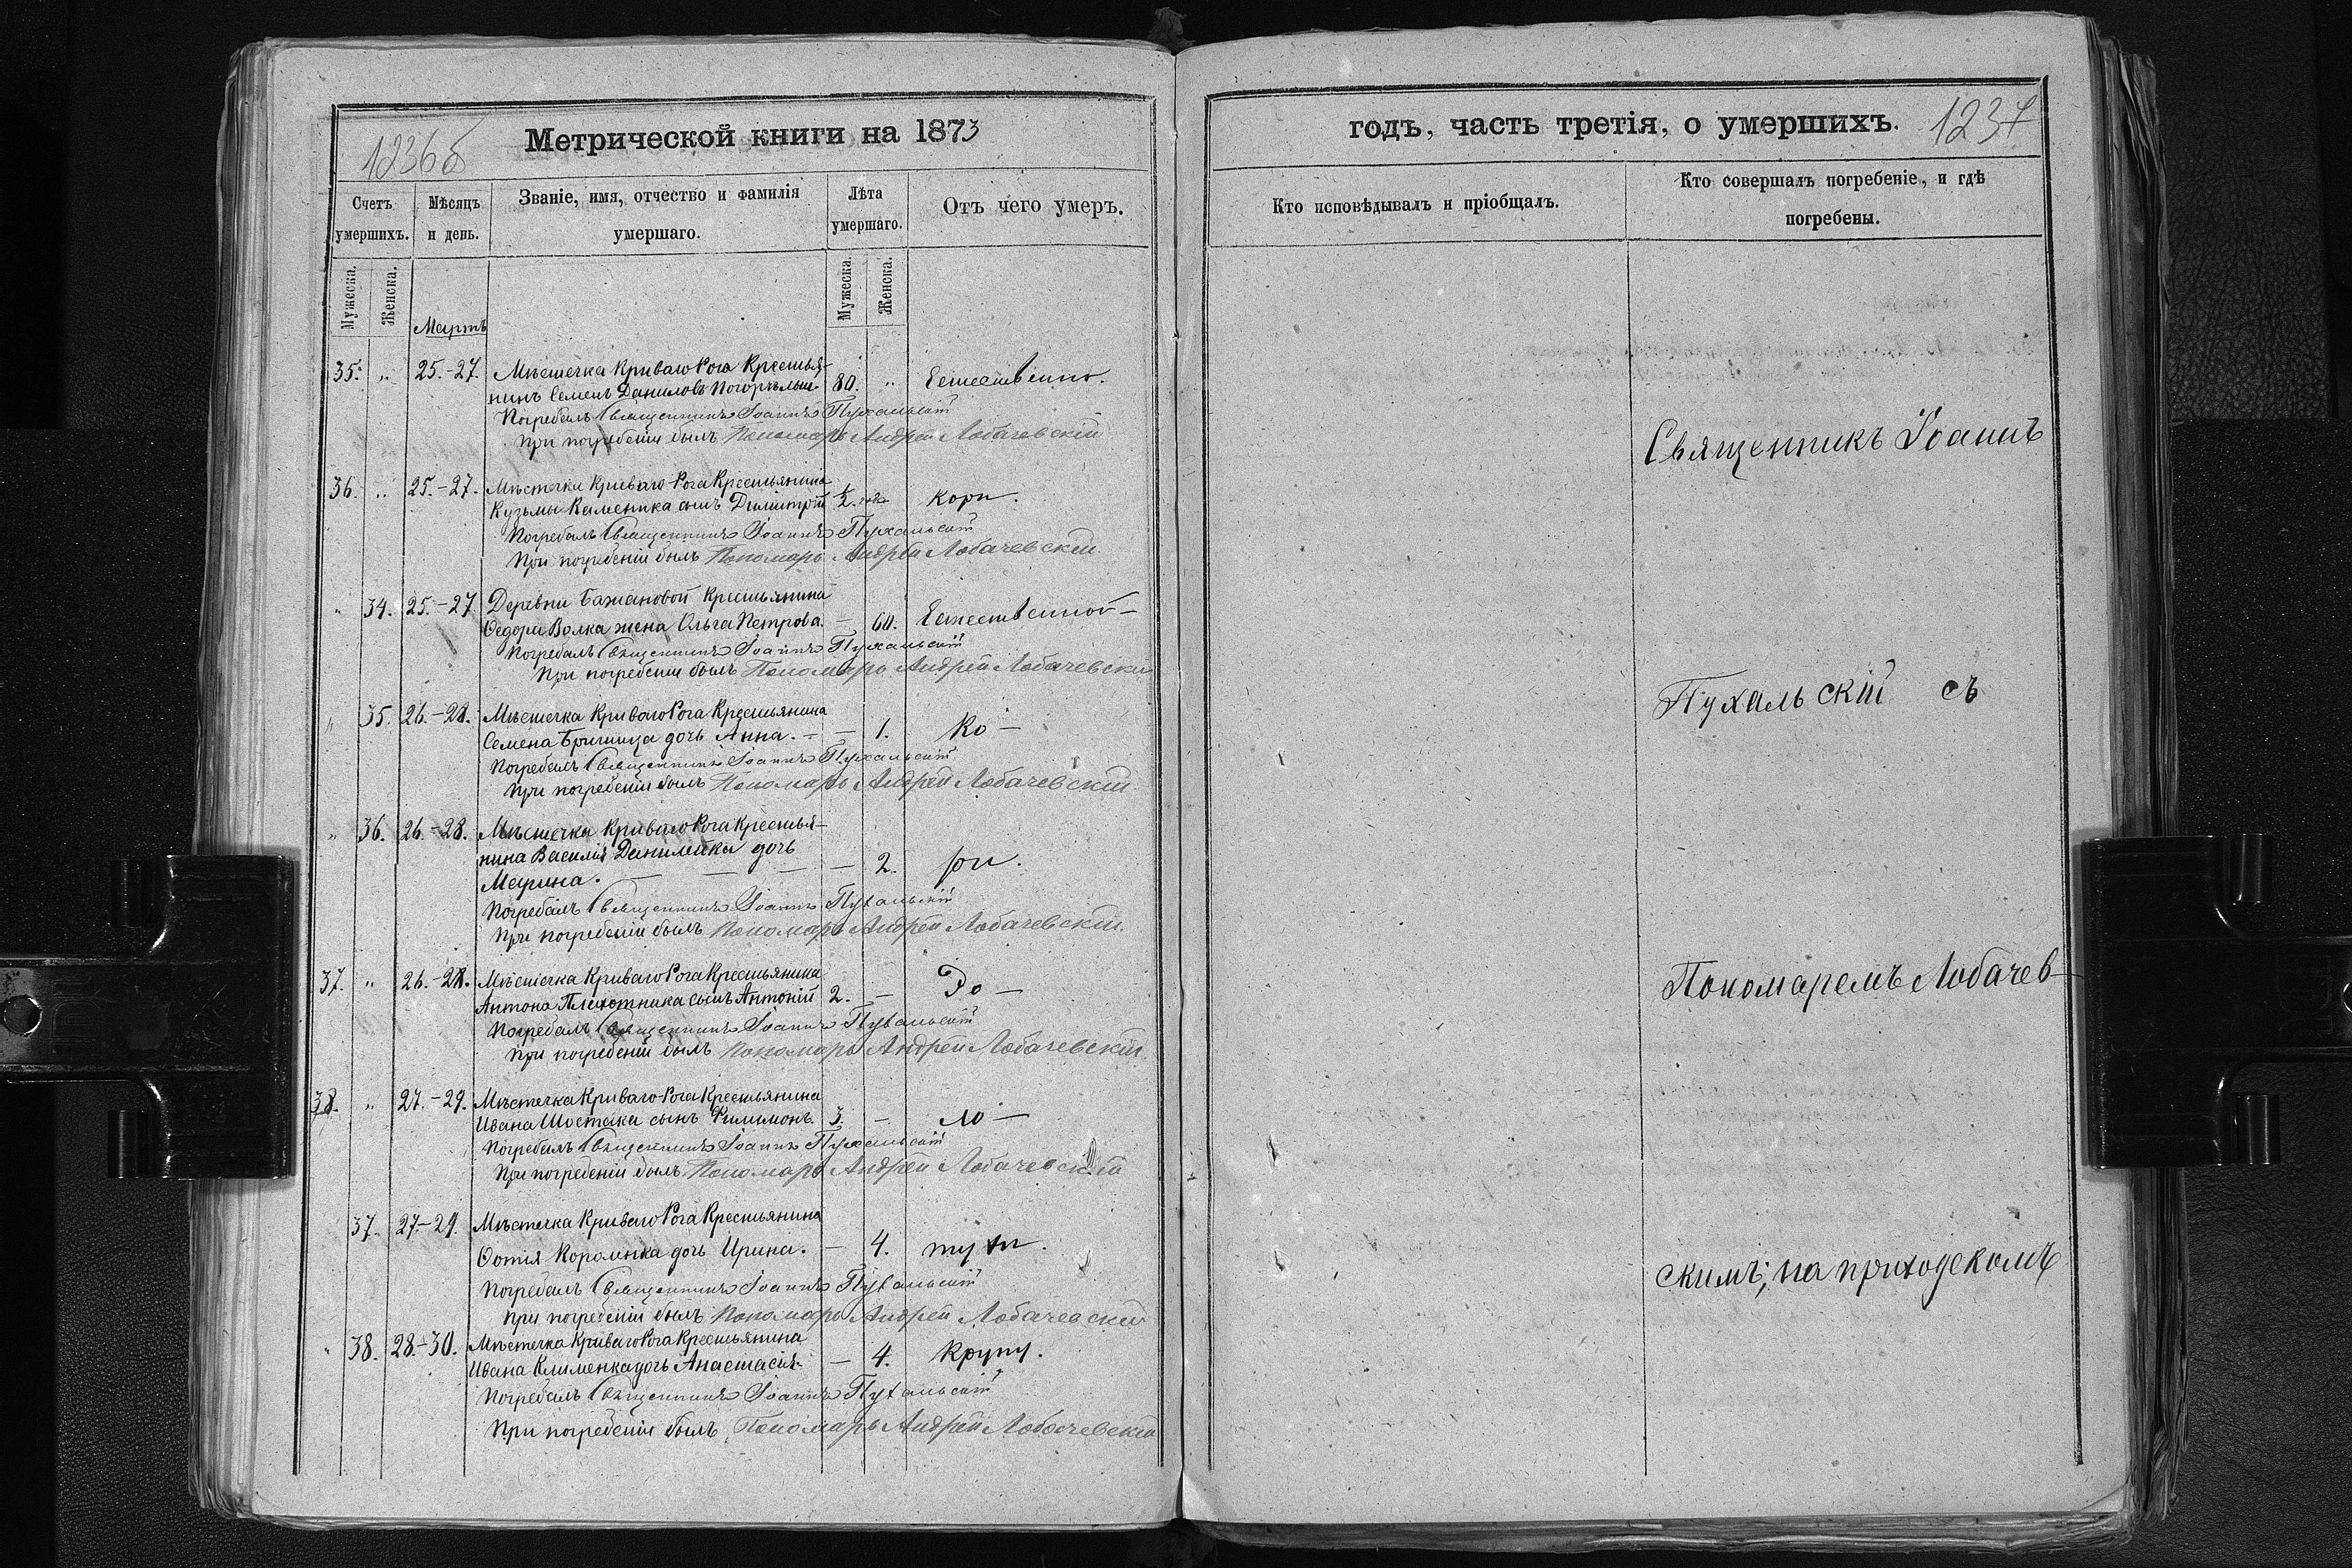 1236б
Метрической книги на 1873
Счетъ умершихъ.
Мѣсяцъ и день.
Званіе, имя, отчество и фамилія умершаго.
Лѣта умершаго.
Отъ чего умеръ.
Мужеска.
Женска.
Мартъ
Мужеска.
Женска.
35. „ 25.-27. Мѣстечка Криваго Рога Крестья-
нинъ Семенъ Даниловъ 80. „ Естественно.
Погребалъ Священникъ Іоаннъ Пухальскій
при погребеніи былъ Пономарь Андрей Лобачевскій
36. „ 25.-27. Мѣстечка Криваго Рога Крестьянина
Кузьмы сынъ Димитрій ½ кори.
Погребалъ Священникъ Іоаннъ Пухальскій
При погребеніи былъ Пономарь Андрей Лобачевскій
„ 34. 25.-27. Деревни Бажановой Крестьянина
Ѳедора Волка жена Ольга Петрова. — 60. Естественной —
Погребалъ Священникъ Іоаннъ Пухальскій
При погребеніи былъ Пономарь Андрей Лобачевскій
„ 35. 26.-28. Мѣстечка Криваго Рога Крестьянина
Семена дочь Анна. — — 1. Ко —
Погребалъ Священникъ Іоаннъ Пухальскій
При погребеніи былъ Пономарь Андрей Лобачевскій
„ 36. 26.-28. Мѣстечка Криваго Рога Крестья-
нина Василія дочь
Марина. — — — — 2. ри.
Погребалъ Священникъ Іоаннъ Пухальскій
При погребеніи былъ Пономарь Андрей Лобачевскій.
37. „ 26.-28. Мѣстечка Криваго Рога Крестьянина
Антона сынъ Антоній 2. —
Погребалъ Священникъ Іоаннъ Пухальскій
При погребеніи былъ Пономарь Андрей Лобачевскій
38. „ 27.-29. Мѣстечка Криваго Рога Крестьянина
Ивана Шостака сынъ Филимонъ. 3. —
Погребалъ Священникъ Іоаннъ Пухальскій
При погребеніи былъ Пономарь Андрей Лобачевскій
37. 27.-29. Мѣстечка Криваго Рога Крестьянина
Фотія дочь Ирина. — 4.
Погребалъ Священникъ Іоаннъ Пухальскій
при погребеніи былъ Пономарь Андрей Лобачевскій
„ 38. 28.-30. Мѣстечка Криваго Рога Крестьянина
Ивана Клименка дочь Анастасія — 4. Крупу.
Погребалъ Священникъ Іоаннъ Пухальскій
При погребеніи былъ Пономарь Андрей Лобачевскій
годъ, часть третія, о умершихъ.
1237
Кто исповѣдывалъ и пріобщалъ.
Кто совершалъ погребеніе, и гдѣ
погребены.
Священникъ Іоаннъ
Пухальскій съ
Пономаремъ Лобачев-
скимъ; на приходскомъ